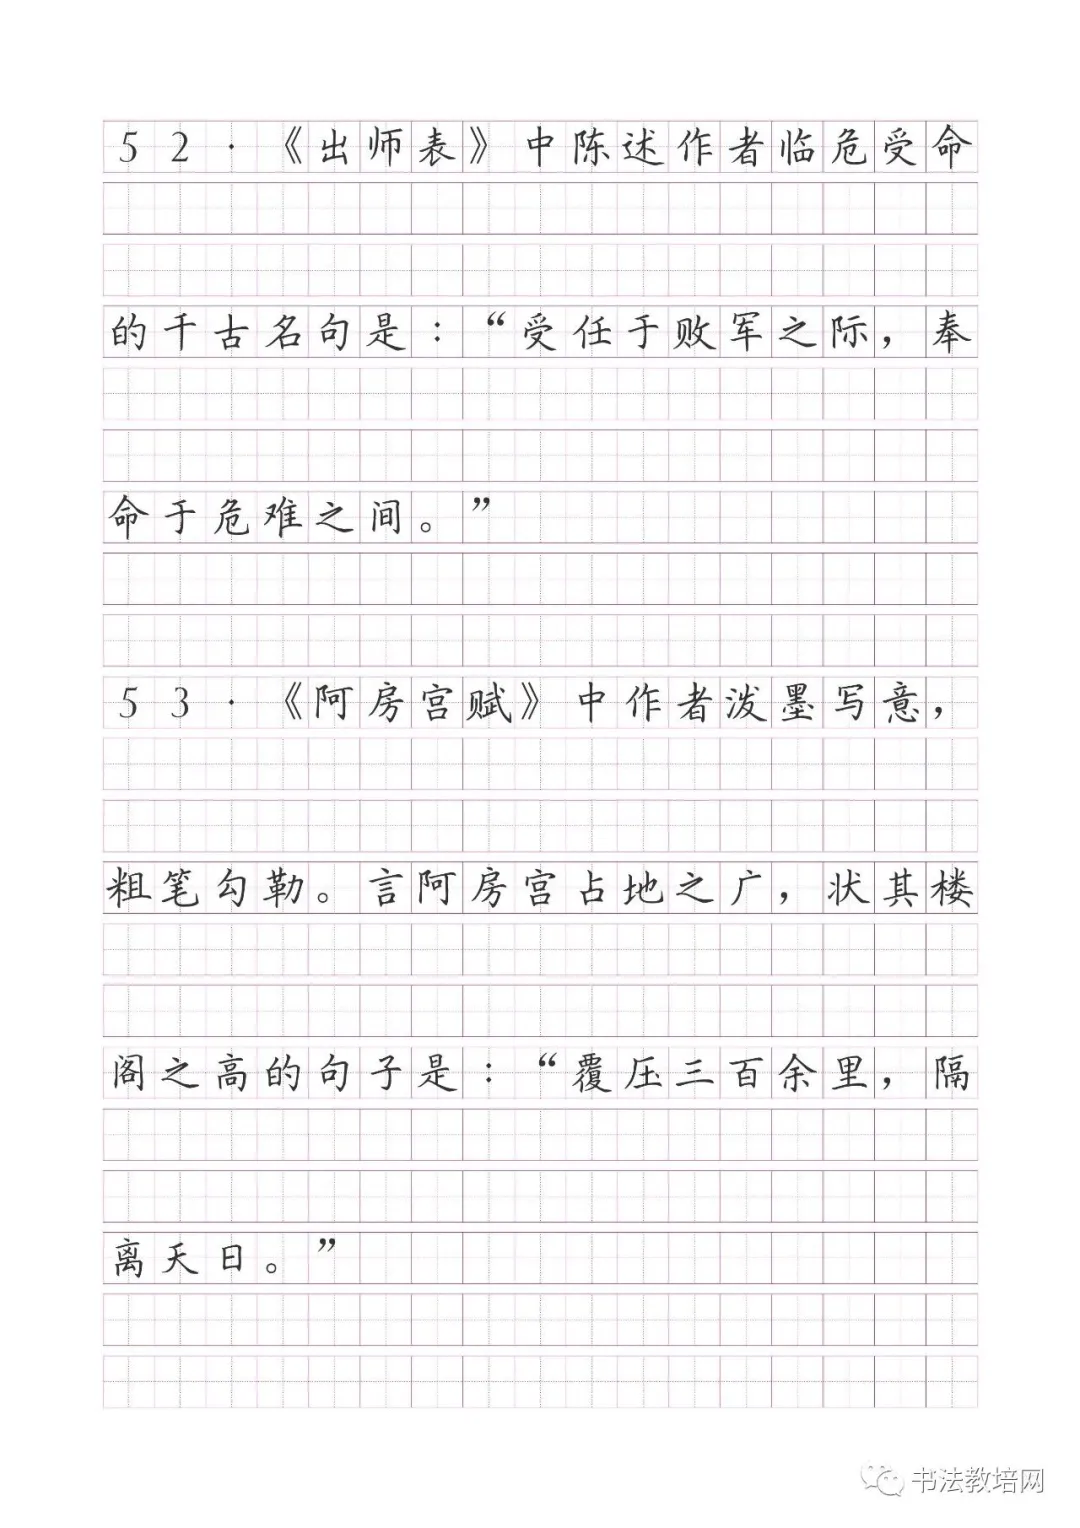 52·《出师表》中陈述作者临危受命
的千古名句是：“受任于败军之际，奉
命于危难之间。”
53·《阿房宫赋》中作者泼墨写意，
粗笔勾勒。言阿房宫占地之广，状其楼
阁之高的句子是：“覆压三百余里，隔
离天日。”
书法教培网